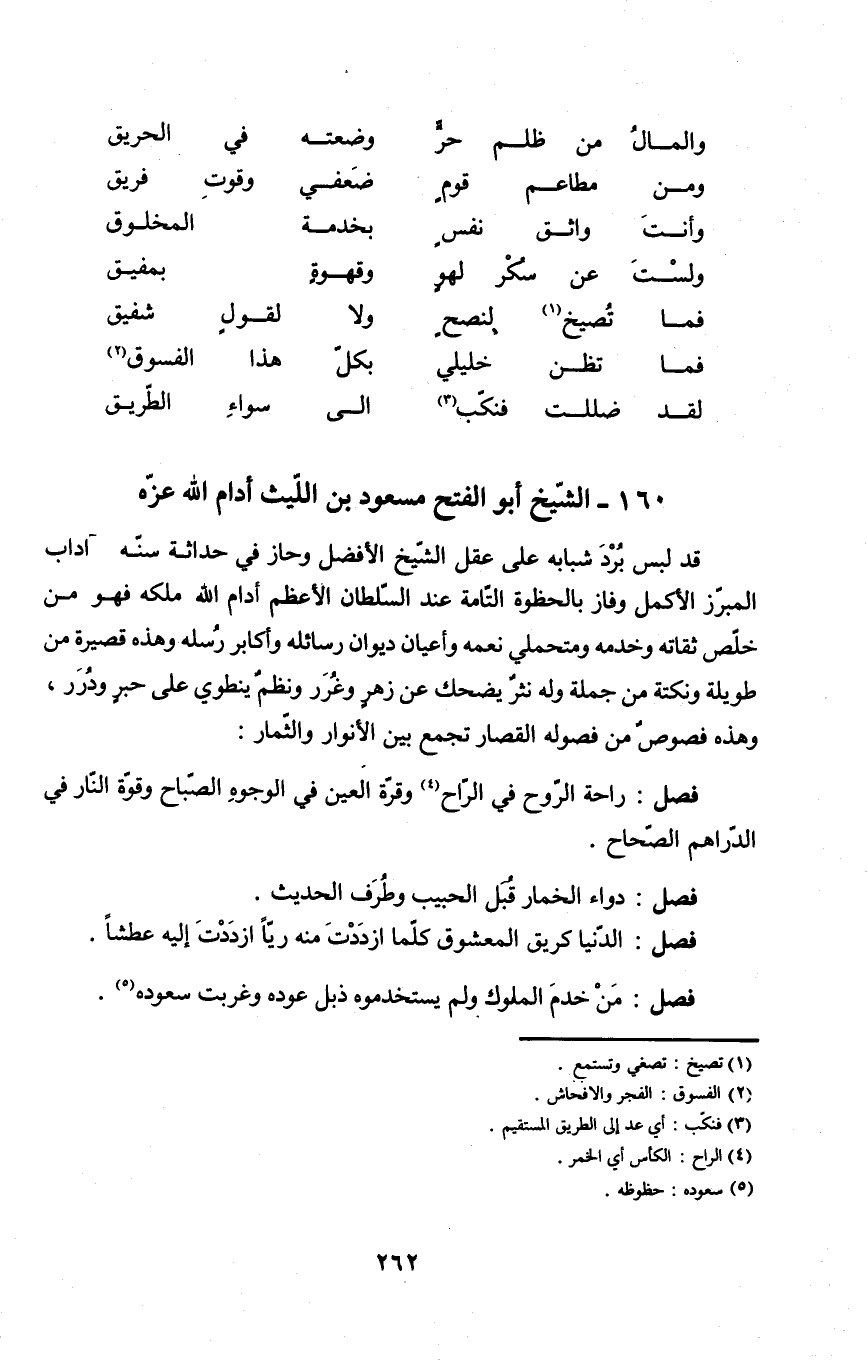 والمـــالُ من ظلـــم حرٍّ وضعتـــه في الحريق
ومـــن مطاعـــم قومٍ ضَعفـــي وقوتِ فريق
وأنـــتَ واثـــق نفسٍ بخدمـــة المخلـوق
ولسْـــتَ عن سُكْر لهوٍ وقهـــوةٍ بمفيـق
فمـــا تُصيخ(١) لِنصحٍ ولا لقـــولِ شفيق
فمـــا تظـــن خليلي بكلّ هذا الفسوق(٢)
لقـد ضللـــت فنكّب(٣) الـــى سواءِ الطّريـق
١٦٠ - الشّيخ أبو الفتح مسعود بن اللّيث أدام الله عزّه
قد لبس بُرْدَ شبابه على عقل الشّيخ الأفضل وحاز في حداثـة سنّـه آداب
المبرّز الأكمل وفاز بالحظوة التّامة عند السّلطان الأعظم أدام الله ملكه فهـو مـن
خلّص ثقاته وخدمه ومتحملي نعمه وأعيان ديوان رسائله وأكابر رُسله وهذه قصيرة من
طويلة ونكتة من جملة وله نثرٌ يضحك عن زهرٍ وغُرَر ونظمٌ ينطوي على حبرٍ ودُرَر ،
وهذه فصوصٌ من فصوله القصار تجمع بين الأنوار والثّمار :
فصل : راحة الرّوح في الرّاح(٤) وقرّة العين في الوجوهِ الصّباح وقوّة النّار في
الدّراهم الصّحاح .
فصل : دواء الخمار قُبَل الحبيب وطُرَف الحديث .
فصل : الدّنيا كريق المعشوق كلّما ازدَدْتَ منه ريّاً ازدَدْتَ إليه عطشاً .
فصل : مَنْ خدمَ الملوك ولم يستخدموه ذبل عوده وغربت سعوده(٥) .
(١) تصيخ : تصغي وتستمع .
(٢) الفسوق : الفجر والافحاش .
(٣) فنكّب : أي عد إلى الطريق المستقيم .
(٤) الراح : الكأس أي الخمر .
(٥) سعوده : حظوظه .
٢٦٢